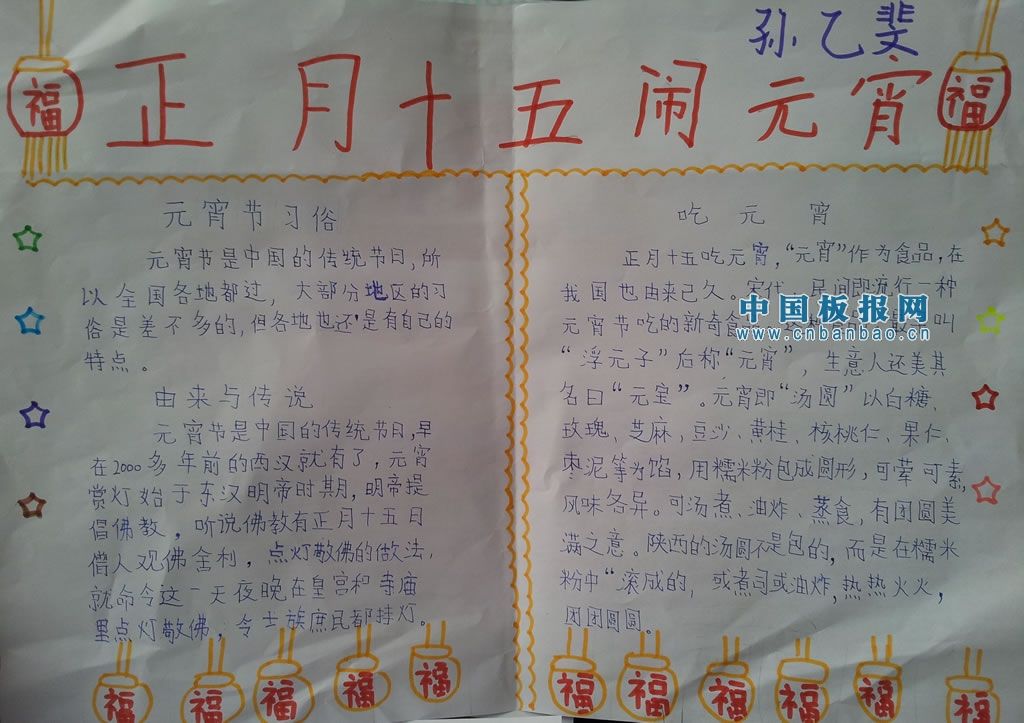 孙乙斐
正月十五闹元宵
福
福
元宵节习俗
元宵节是中国的传统节日,所
以全国各地都过,大部分地区的习
俗是差不多的,但各地也还是有自己的
特点。
由来与传说
元宵节是中国的传统节日,早
在2000多年前的西汉就有了,元宵
赏灯始于东汉明帝时期,明帝提
倡佛教,听说佛教有正月十五日
僧人观佛舍利,点灯敬佛的做法,
就命令这一天夜晚在皇宫和寺庙
里点灯敬佛,令士族庶民都挂灯。
吃元宵
正月十五吃元宵,“元宵”作为食品,在
我国也由来已久。宋代,民间即流行一种
元宵节吃的新奇食 最早叫
“浮元子”后称“元宵”,生意人还美其
名曰“元宝”。元宵即“汤圆”以白糖、
玫瑰、芝麻,豆沙、黄桂、核桃仁、果仁、
枣泥等为馅,用糯米粉包成圆形,可荤可素,
风味各异。可汤煮、油炸、蒸食,有团圆美
满之意。陕西的汤圆不是包的,而是在糯米
粉中“滚成的,或煮司或油炸,热热火火,
团团圆圆。
中国板报网
www.cnbanbao.cn
福
福
福
福
福
福
福
福
福
福